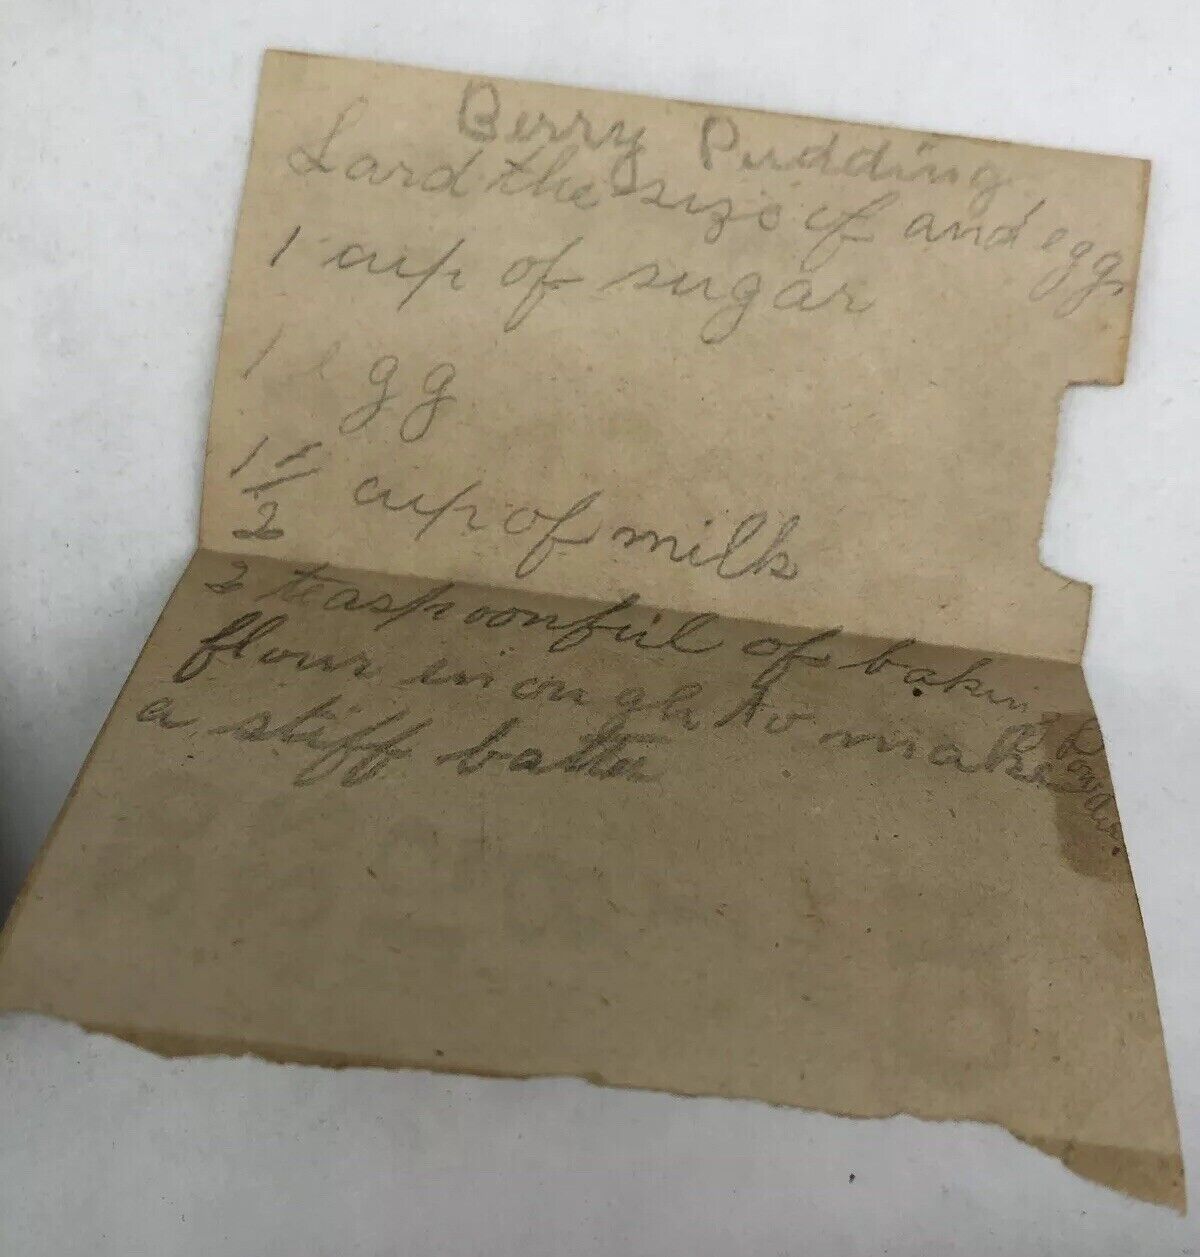 Berry Pudding
Lard the size of and egg
1 cup of sugar
1 egg
1 1/2 cup of milk
2 teaspoonful of baking Powder
flour enough to make
a stiff batter